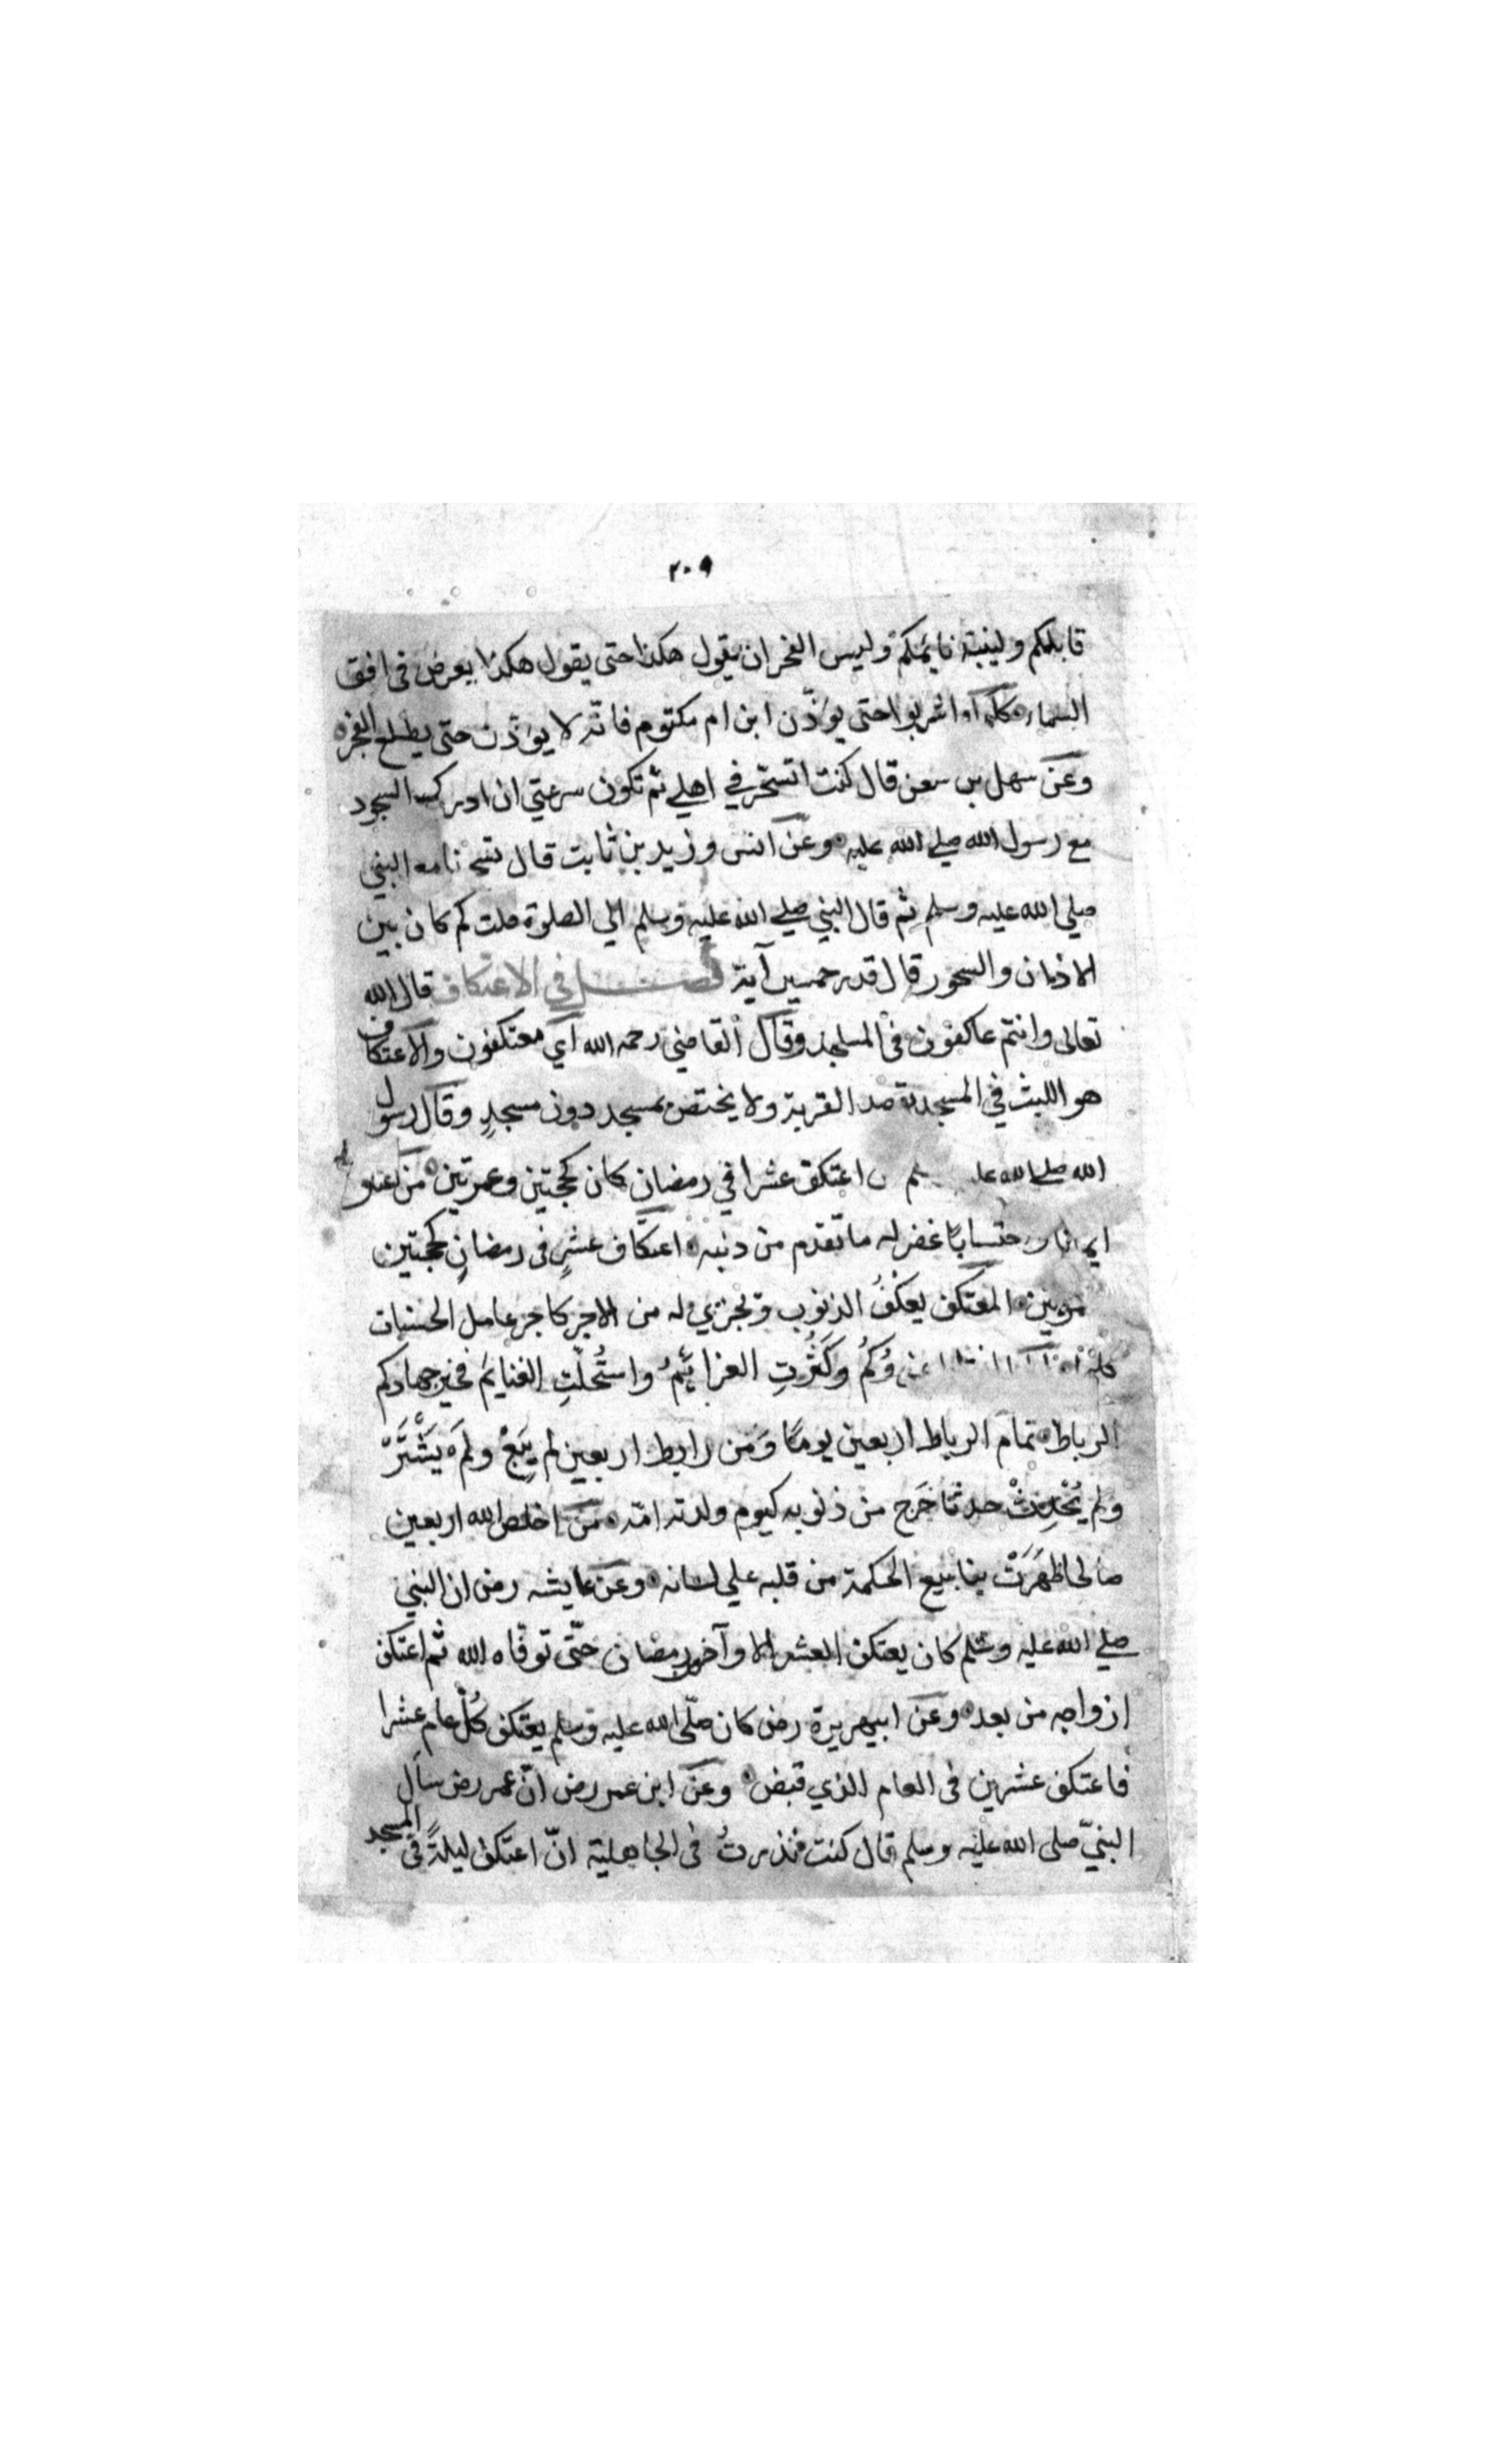 ٢٠٩
قابلكم ولينبه نايمكم وليس الفجر ان يقول هكذا حتى يقول هكذا يعرض في افق
السماء كلوا واشربوا حتى يؤذّن ابن ام مكتوم فانّه لا يؤذّن حتى يطلع الفجر
وعن سهل بن سعن قال كنت اتسحّر في اهلي ثم تكون سرعتي ان ادرك السجود
مع رسول الله صلي الله عليه وعن انس وزيد بن ثابت قال تسحرنا مع النبي
صلي الله عليه وسلم ثم قال النبي صلي الله عليه وسلم الي الصلوة قلت كم كان بين
الاذان والسحور قال قدر خمسين آية فصل في الاعتكاف قال الله
تعالى وانتم عاكفون في المساجد وقال القاضي رحمه الله اي معتكفون والاعتكاف
هو اللبث في المسجد بقصد القربة ولا يختص بمسجد دون مسجدٍ وقال رسول
الله صلي الله اعتكف عشرا في رمضان كان كحجتين وعمرتين من
ايمانا واحتسابًا غفر له ما تقدم من ذنبه اعتكاف عشرٍ في رمضانِ كحجتين
المعتكف يعكفُ الذنوب وتجزي له من الاجر كاجر عامل الحسنات
كلها وَكَثُرَتِ العزائِمُ واستُحلّتِ الغنايَم فخير جهادكم
الرباط تمام الرباط اربعين يومًا وَمن رابط اربعين لم يبِعْ ولَم يَشْتَرْ
ولم يُحْدِثْ حدثا خَرج من ذنوبه كيوم ولدته امّه من اخلص لله اربعين
صالحا ظَهَرَتْ ينابيع الحكمة من قلبه علي لسانه وعن عايشه رض ان النبي
صلي الله عليه وسلم كان يعتكف العشر الاوآخر رمضان حتّى توفّاه الله ثم اعتكف
ازواجه من بعده وعن ابيهريرة رض كان صلّى الله عليه وسلم يعتكف كُلّ عام عشرا
فاعتكف عشرين في العام الذي قبض وعن ابن عمر رض انّ عمر رض سأل
النبيّ صلى الله عليه وسلم قال كنت نذرتُ في الجاهلية انّ اعتكف ليلةً في المسجد